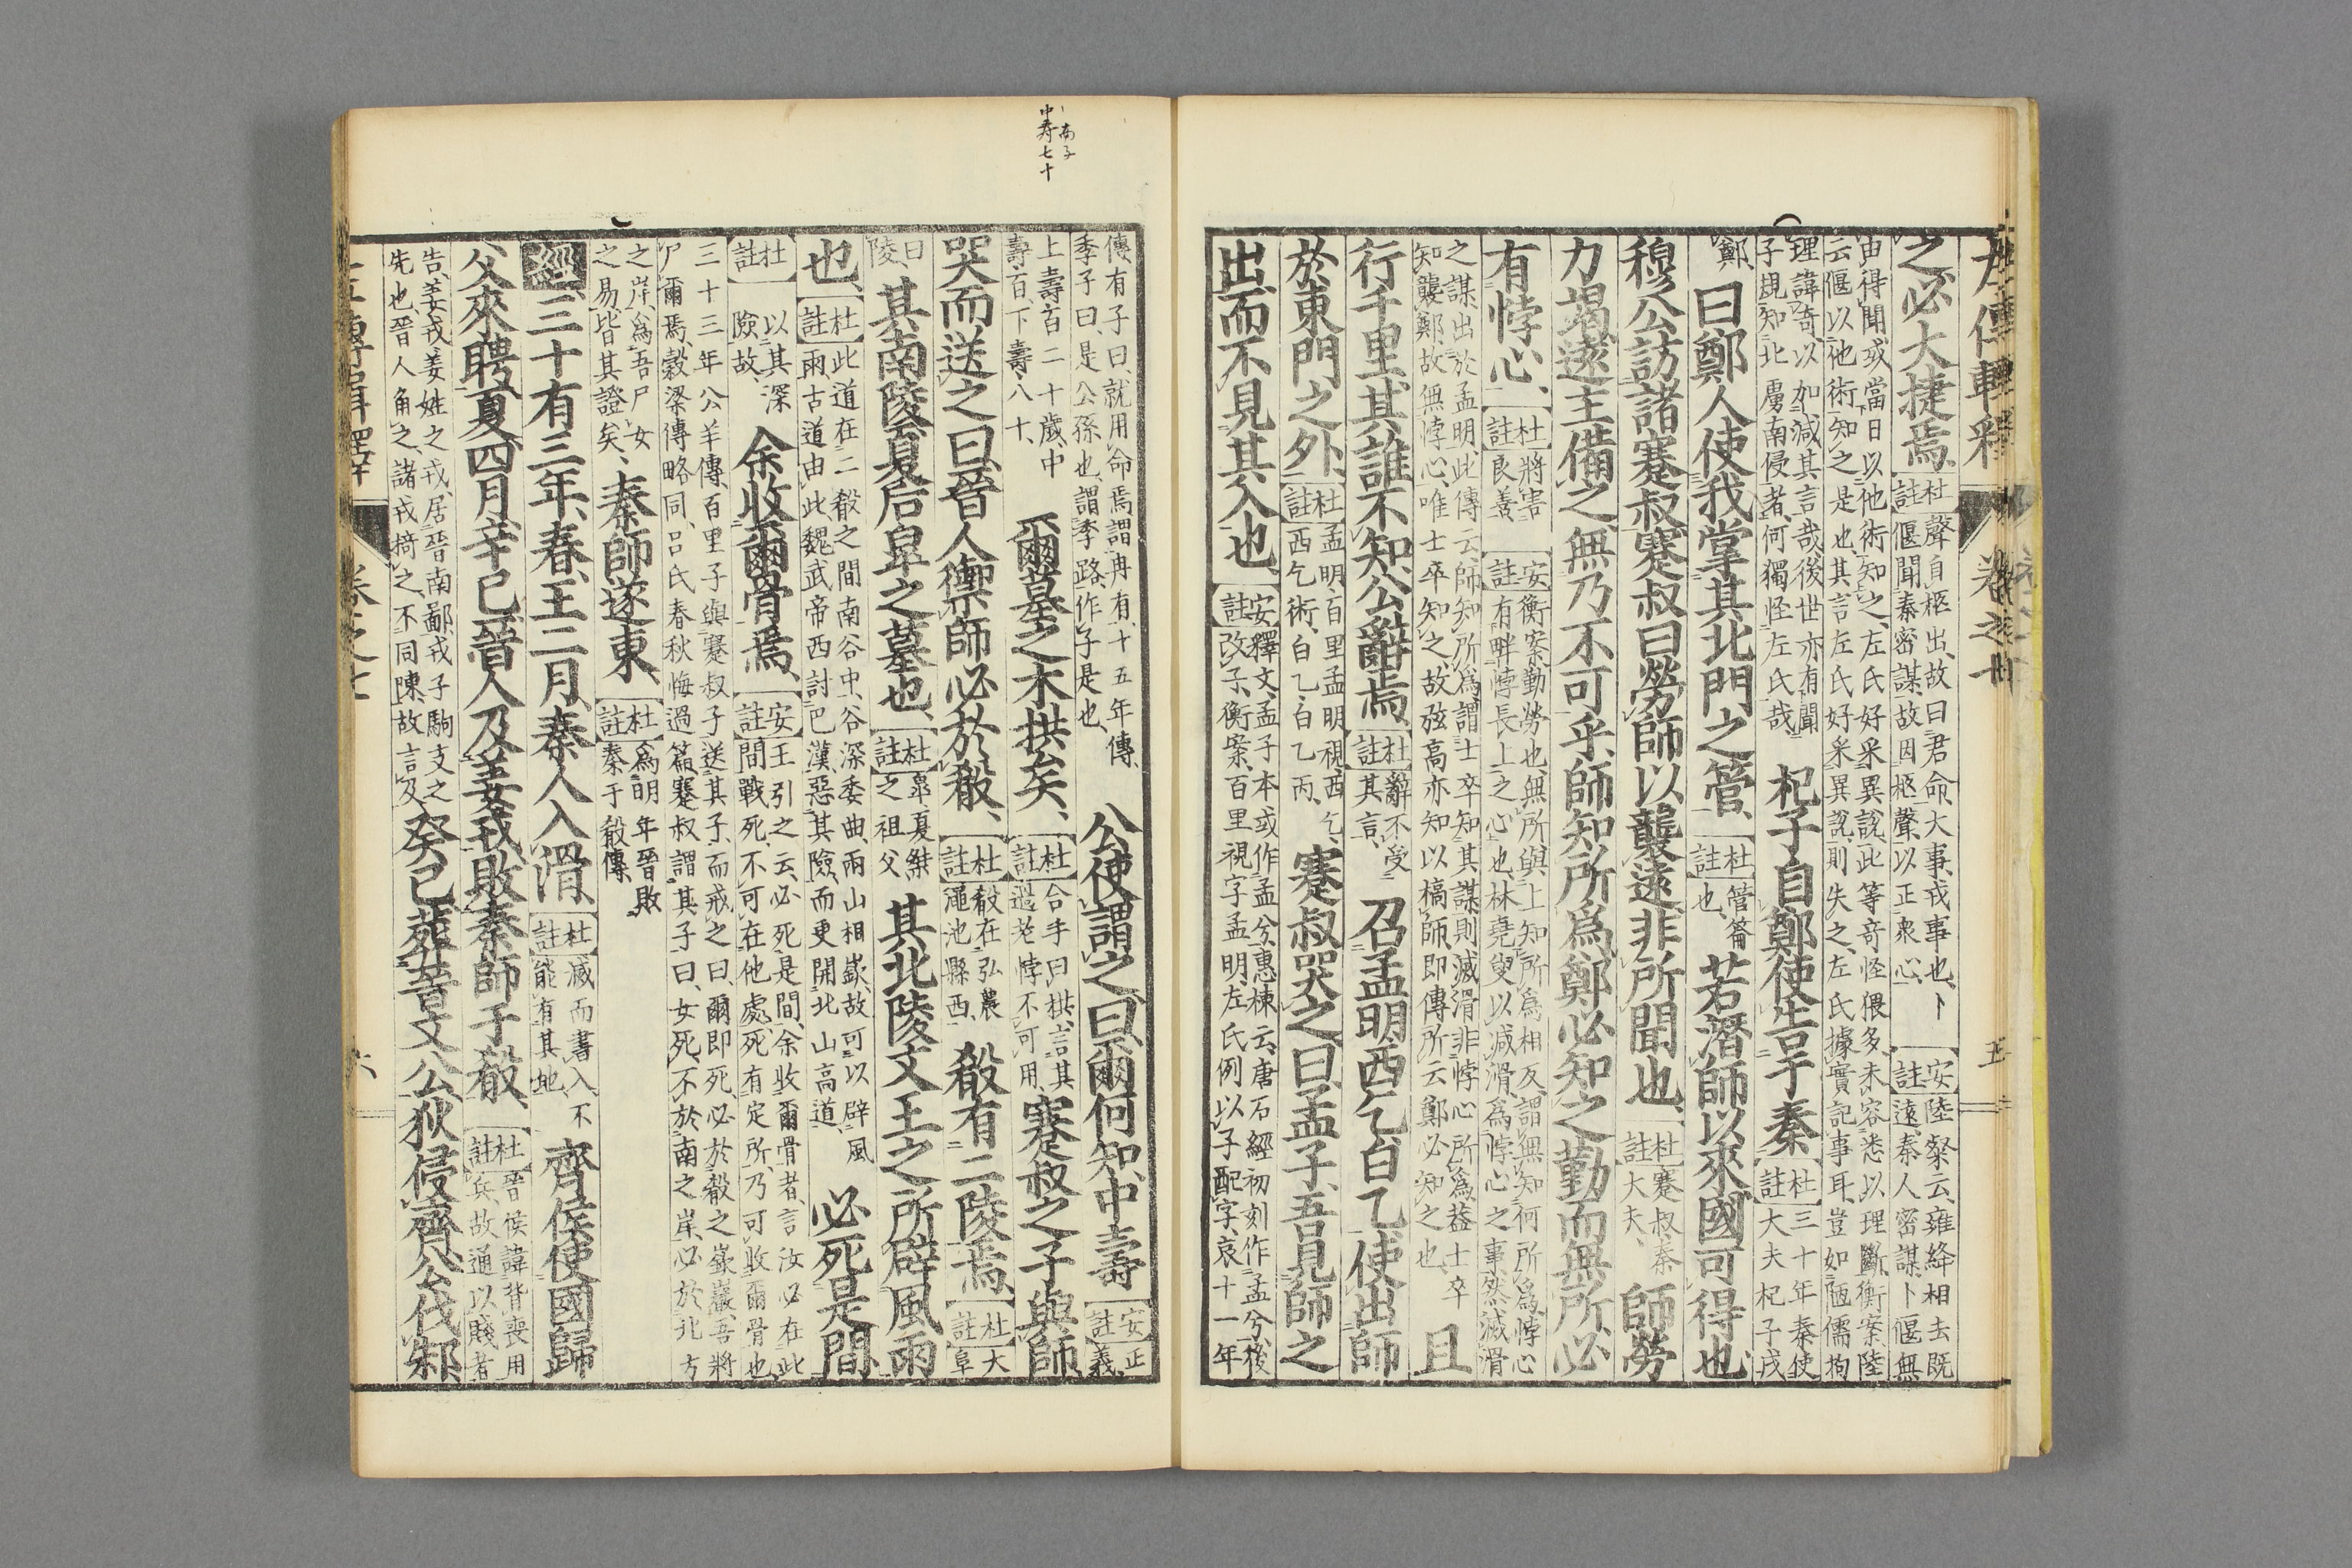 左傳輯釋
卷之七
五
之必大捷焉、杜註聲自柩出、故曰君命、大事、戎事也、卜偃聞秦密謀、故因柩聲以正衆心、安註陸粲云、雍絳相去既遠、秦人密謀、卜偃無
由得聞、或當日以他術知之、左氏好采異説、此等奇怪猥多、未容悉以理斷、衡案、陸云偃以他術知之是也、其言左氏好采異説、則失之、左氏據實記事耳、豈如陋儒拘
理諱奇、以加減其言哉、後世亦有聞子規知北虜南侵者、何獨怪左氏哉、杞子自鄭使告于秦杜註三十年秦使大夫杞子戍
鄭、曰鄭人使我掌其北門之管、杜註管籥也、若潛師以來國可得也
穆公訪諸蹇叔蹇叔曰勞師以襲遠非所聞也、杜註蹇叔、秦大夫、師勞
力竭遠主備之無乃不可乎、師知所爲鄭必知之勤而無所必
有悖心、杜註將害良善安註衡案、勤勞也、無所與上知所爲相反、謂無知何所爲、悖心有畔悖長上之心也、林堯叟以滅滑爲悖心之事、然滅滑
之謀、出於孟明、此傳云師知所爲、謂士卒知其謀、則滅滑非悖心所爲、蓋士卒知襲鄭、故無悖心、唯士卒知之、故弦高亦知以槁師、即傳所云鄭必知之也、且
行千里其誰不知、公辭焉、杜註辭不受其言、召孟明西乞白乙使出師
於東門之外、杜註孟明、百里孟明視、西乞、西乞術、白乙、白乙丙、蹇叔哭之曰孟子、吾見師之
出而不見其入也、安註釋文、孟子本或作孟兮、惠棟云、唐石經初刻作孟兮、後改子、衡案、百里視字孟明、左氏例以子配字、哀十一年
傳、有子曰、就用命焉、謂冉有、十五年傳、季子曰、是公孫也、謂季路、作子是也、公使謂之曰、爾何知、中壽安註正義、
上壽百二十歲、中壽百、下壽八十、爾墓之木拱矣、杜註合手曰拱、言其過老悖不可用、蹇叔之子與師
哭而送之曰晉人禦師必於殽、杜註殽在弘農澠池縣西、殽有二陵焉、杜註大阜
曰陵、其南陵夏后皐之墓也、杜註皐、夏桀之祖父其北陵文王之所辟風雨
也、杜註此道在二殽之間南谷中、谷深委曲、兩山相嶔、故可以辟風雨、古道由此、魏武帝西討巴漢、惡其險、而更開北山高道、必死是間、
杜註以其深險故、余收爾骨焉、安註王引之云、必死是間、余收爾骨者、言汝必在此間戰死、不可在他處死、死有定所、乃可收爾骨也、
三十三年公羊傳、百里子與蹇叔子送其子、而戒之曰、爾即死、必於殽之嶔巖、吾將尸爾焉、穀梁傳略同、呂氏春秋悔過篇、蹇叔謂其子曰、女死、不於南之岸、必於北方
之岸、爲吾尸女之易、皆其證矣、秦師遂東、杜註爲明年晉敗秦于殽傳、
經三十有三年、春、王二月、秦人入滑、杜註滅而書入、不能有其地、齊侯使國歸
父來聘夏四月辛巳晉人及姜戎敗秦師于殽、杜註晉侯諱背喪用兵、故通以賤者
告、姜戎、姜姓之戎、居晉南鄙、戎子駒支之先也、晉人角之、諸戎掎之、不同陳、故言及癸巳葬晉文公狄侵齊、公伐邾、
中寿七十